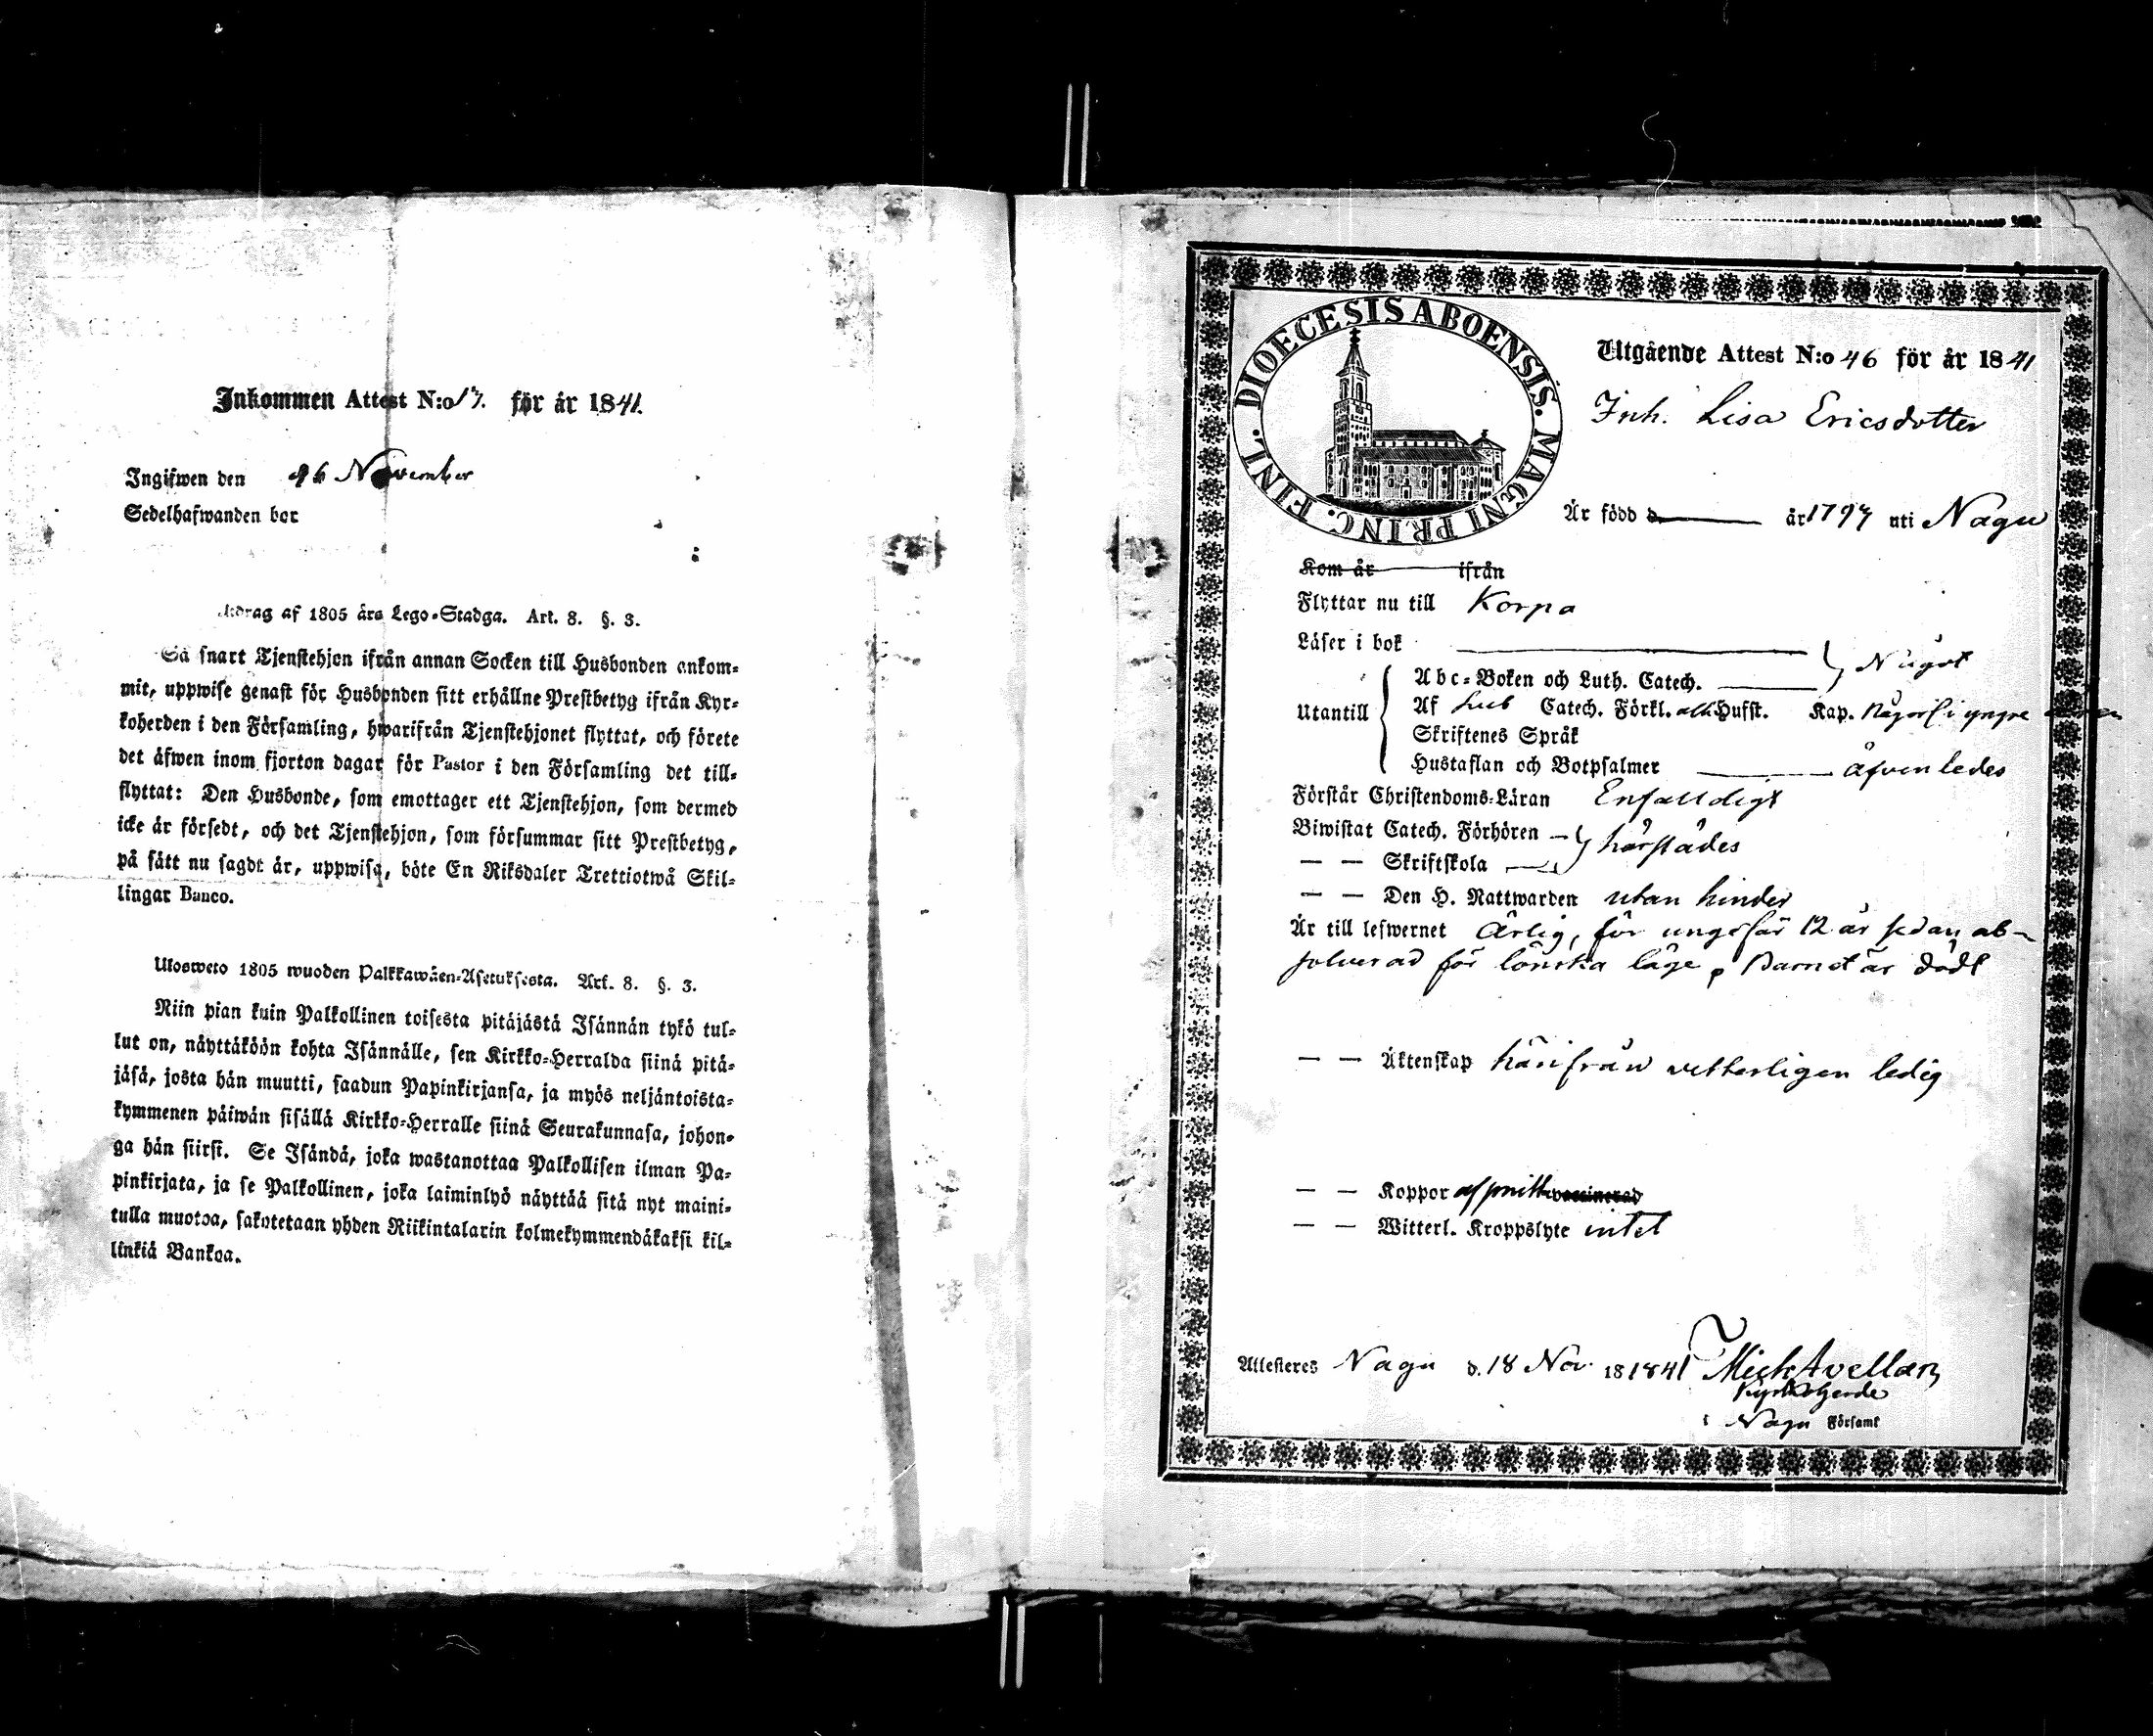 Inkommen Attest N:o 17. för år 1841.
Ingifwen den 26 November
Sedelhafwanden bor
Utdrag af 1805 års Lego-Stadga. Art. 8. §. 3.
Så snart Tjenstehjon ifrån annan Socken till Husbonden ankom-
mit, uppwise genast för Husbonden sitt erhållne Prestbetyg ifrån Kyr-
koherden i den Församling, hwarifrån Tjenstehjonet flyttat, och förete
det äfwen inom fjorton dagar för Pastor i den Församling det till-
flyttat: Den Husbonde, som emottager ett Tjenstehjon, som dermed
icke är försedt, och det Tjenstehjon, som försummar sitt Prestbetyg,
på sätt nu sagdt är, uppwisa, böte En Riksdaler Trettiotwå Skil-
lingar Banco.
Ulosweto 1805 wuoden Palkkawäen-Asetuksesta. Art. 8. §. 3.
Niin pian kuin Palkollinen toisesta pitäjästä Isännän tykö tul-
lut on, näyttäköön kohta Isännälle, sen Kirkko-Herralda siinä pitä-
jäsä, josta hän muutti, saadun Papinkirjansa, ja myös neljäntoista-
kymmenen päiwän sisällä Kirkko-Herralle siinä Seurakunnasa, johon-
ga hän siirsi. Se Isändä, joka wastanottaa Palkollisen ilman Pa-
pinkirjata, ja se Palkollinen, joka laiminlyö näyttää sitä nyt maini-
tulla muotoa, sakotetaan yhden Riikintalarin kolmekymmendäkaksi kil-
linkiä Bankoa.
DIOECESIS ABOENSIS. MAGNI PRINC. FINL.
Utgående Attest N:o 46 för år 1841
Inh. Lisa Ericsdotter
Är född d. år 1797 uti Nagu
Kom år ifrån
Flyttar nu till Korpo
Läser i bok Något
Utantill
Abc-Boken och Luth. Catech.
Af Catech. Förkl. Hufst. Kap. i yngre
Skriftenes Språk
Hustaflan och Botpsalmer äfvenledes
Förstår Christendoms-Läran Enfalldigt
Biwistat Catech. Förhören härstädes
— — Skriftskola
— — Den H. Nattwarden utan hinder
Är till lefwernet Ärlig, för ungefär 12 år sedan ab-
solverad för lönska läge, Barnet är dödt
— — Äktenskap härifrån vetterligen ledig
— — Koppor vaccinerad
— — Witterl. Kroppslyte intet
Attesteres Nagu d. 18 Nov. 18 1841 Mich Avellan
Kyrkoherde
i Nagu Församl